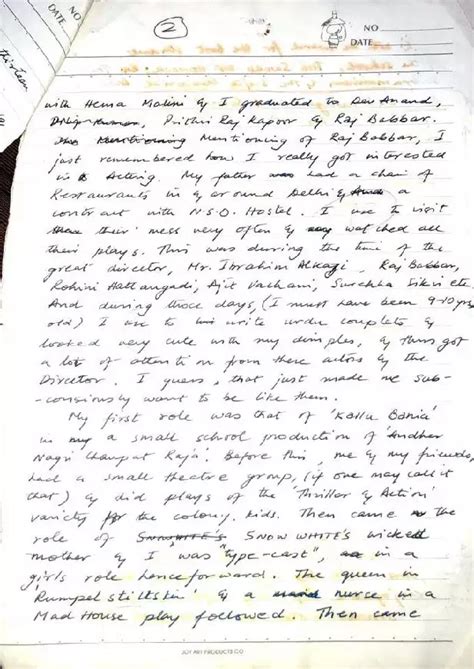 2
NO.
DATE
NO.
DATE
thirteen
with Hema Malini & I graduated to Dev Anand,
Dilip Kumar, Prithvi Raj Kapoor & Raj Babbar.
The Mentioning Mentioning of Raj Babbar, I
just remembered how I really got interested
in Acting. My father had a chain of
Restaurants in & around Delhi & a
contract with N.S.D. Hostel. I use to visit
their mess very often & watched all
their plays. This was during the time of the
great director, Mr. Ibrahim Alkazi, Raj Babbar,
Rohini Hattangadi, Ajit Vachani, Surekha Sikri etc.
And during those days, (I must have been 9-10 yrs
old) I use to write urdu couplets &
looked very cute with my dimples, & thus got
a lot of attention from these actors & the
Director. I guess, that just made me sub-
-consiously want to be like them.
My first role was that of 'Kallu Bania'
in my a small school production of 'Andher
Nagri Chaupat Raja'. Before this, me & my friends,
had a small theatre group, (if one may call it
that) & did plays of the 'Thriller & Action'
variety for the colony kids. Then came the
role of SNOWHITE'S SNOW WHITE'S wicked
mother & I was "type-cast", in a
girls role henceforward. The queen in
Rumpelstiltskin' & a nurse in a
Mad House play followed. Then came
JOY ART PRODUCTS CO